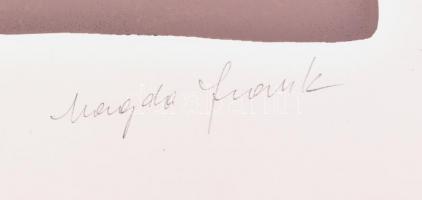 Magda Frank